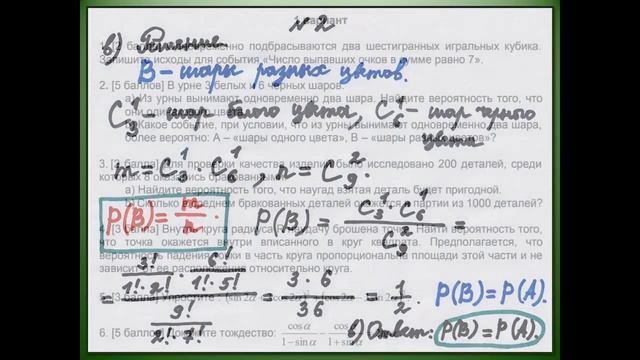 N 2
1 вариант
в) Решение
1. [2 балла] Одновременно подбрасываются два шестигранных игральных кубика.
исходы для события «Число выпавших очков в сумме равно 7».
B – шары разных цветов.
2. [5 баллов] В урне 3 белых и 6 черных шаров.
а) Из урны вынимают одновременно два шара. Найдите вероятность того, что
C₃¹ – шар белого цвета, C₆¹ – шар черного цвета
Какое событие, при условии, что из урны вынимают одновременно два шара,
более вероятно: А – «шары одного цвета», В – «шары цветов»?
m = C₃¹ · C₆¹, n = C₉²
3. [3 балла] Для проверки качества изделий было исследовано 200 деталей, среди
которых оказались
а) Найдите вероятность того, что наугад взятая деталь будет пригодной.
б) Сколько бракованных деталей окажется в партии из 1000 деталей?
P(B) = m/n. P(B) = (C₃¹ · C₆¹)/C₉² =
4. [3 балла] Внутри круга радиуса брошена точка. Найти вероятность того,
что точка окажется внутри вписанного в круг квадрата. Предполагается, что
вероятность падения точки в часть круга пропорциональна площади этой части и не
зависит от ее расположения относительно круга.
= (3!/(1!·2!) · 6!/(1!·5!))/(9!/(2!·7!)) = (3·6)/36 = 1/2. P(B) = P(A).
5. [3 балла] Упростите:
в) Ответ: P(B) = P(A).
6. [5 баллов] Докажите тождество: cosα/(1−sinα) − cosα/(1+sinα)